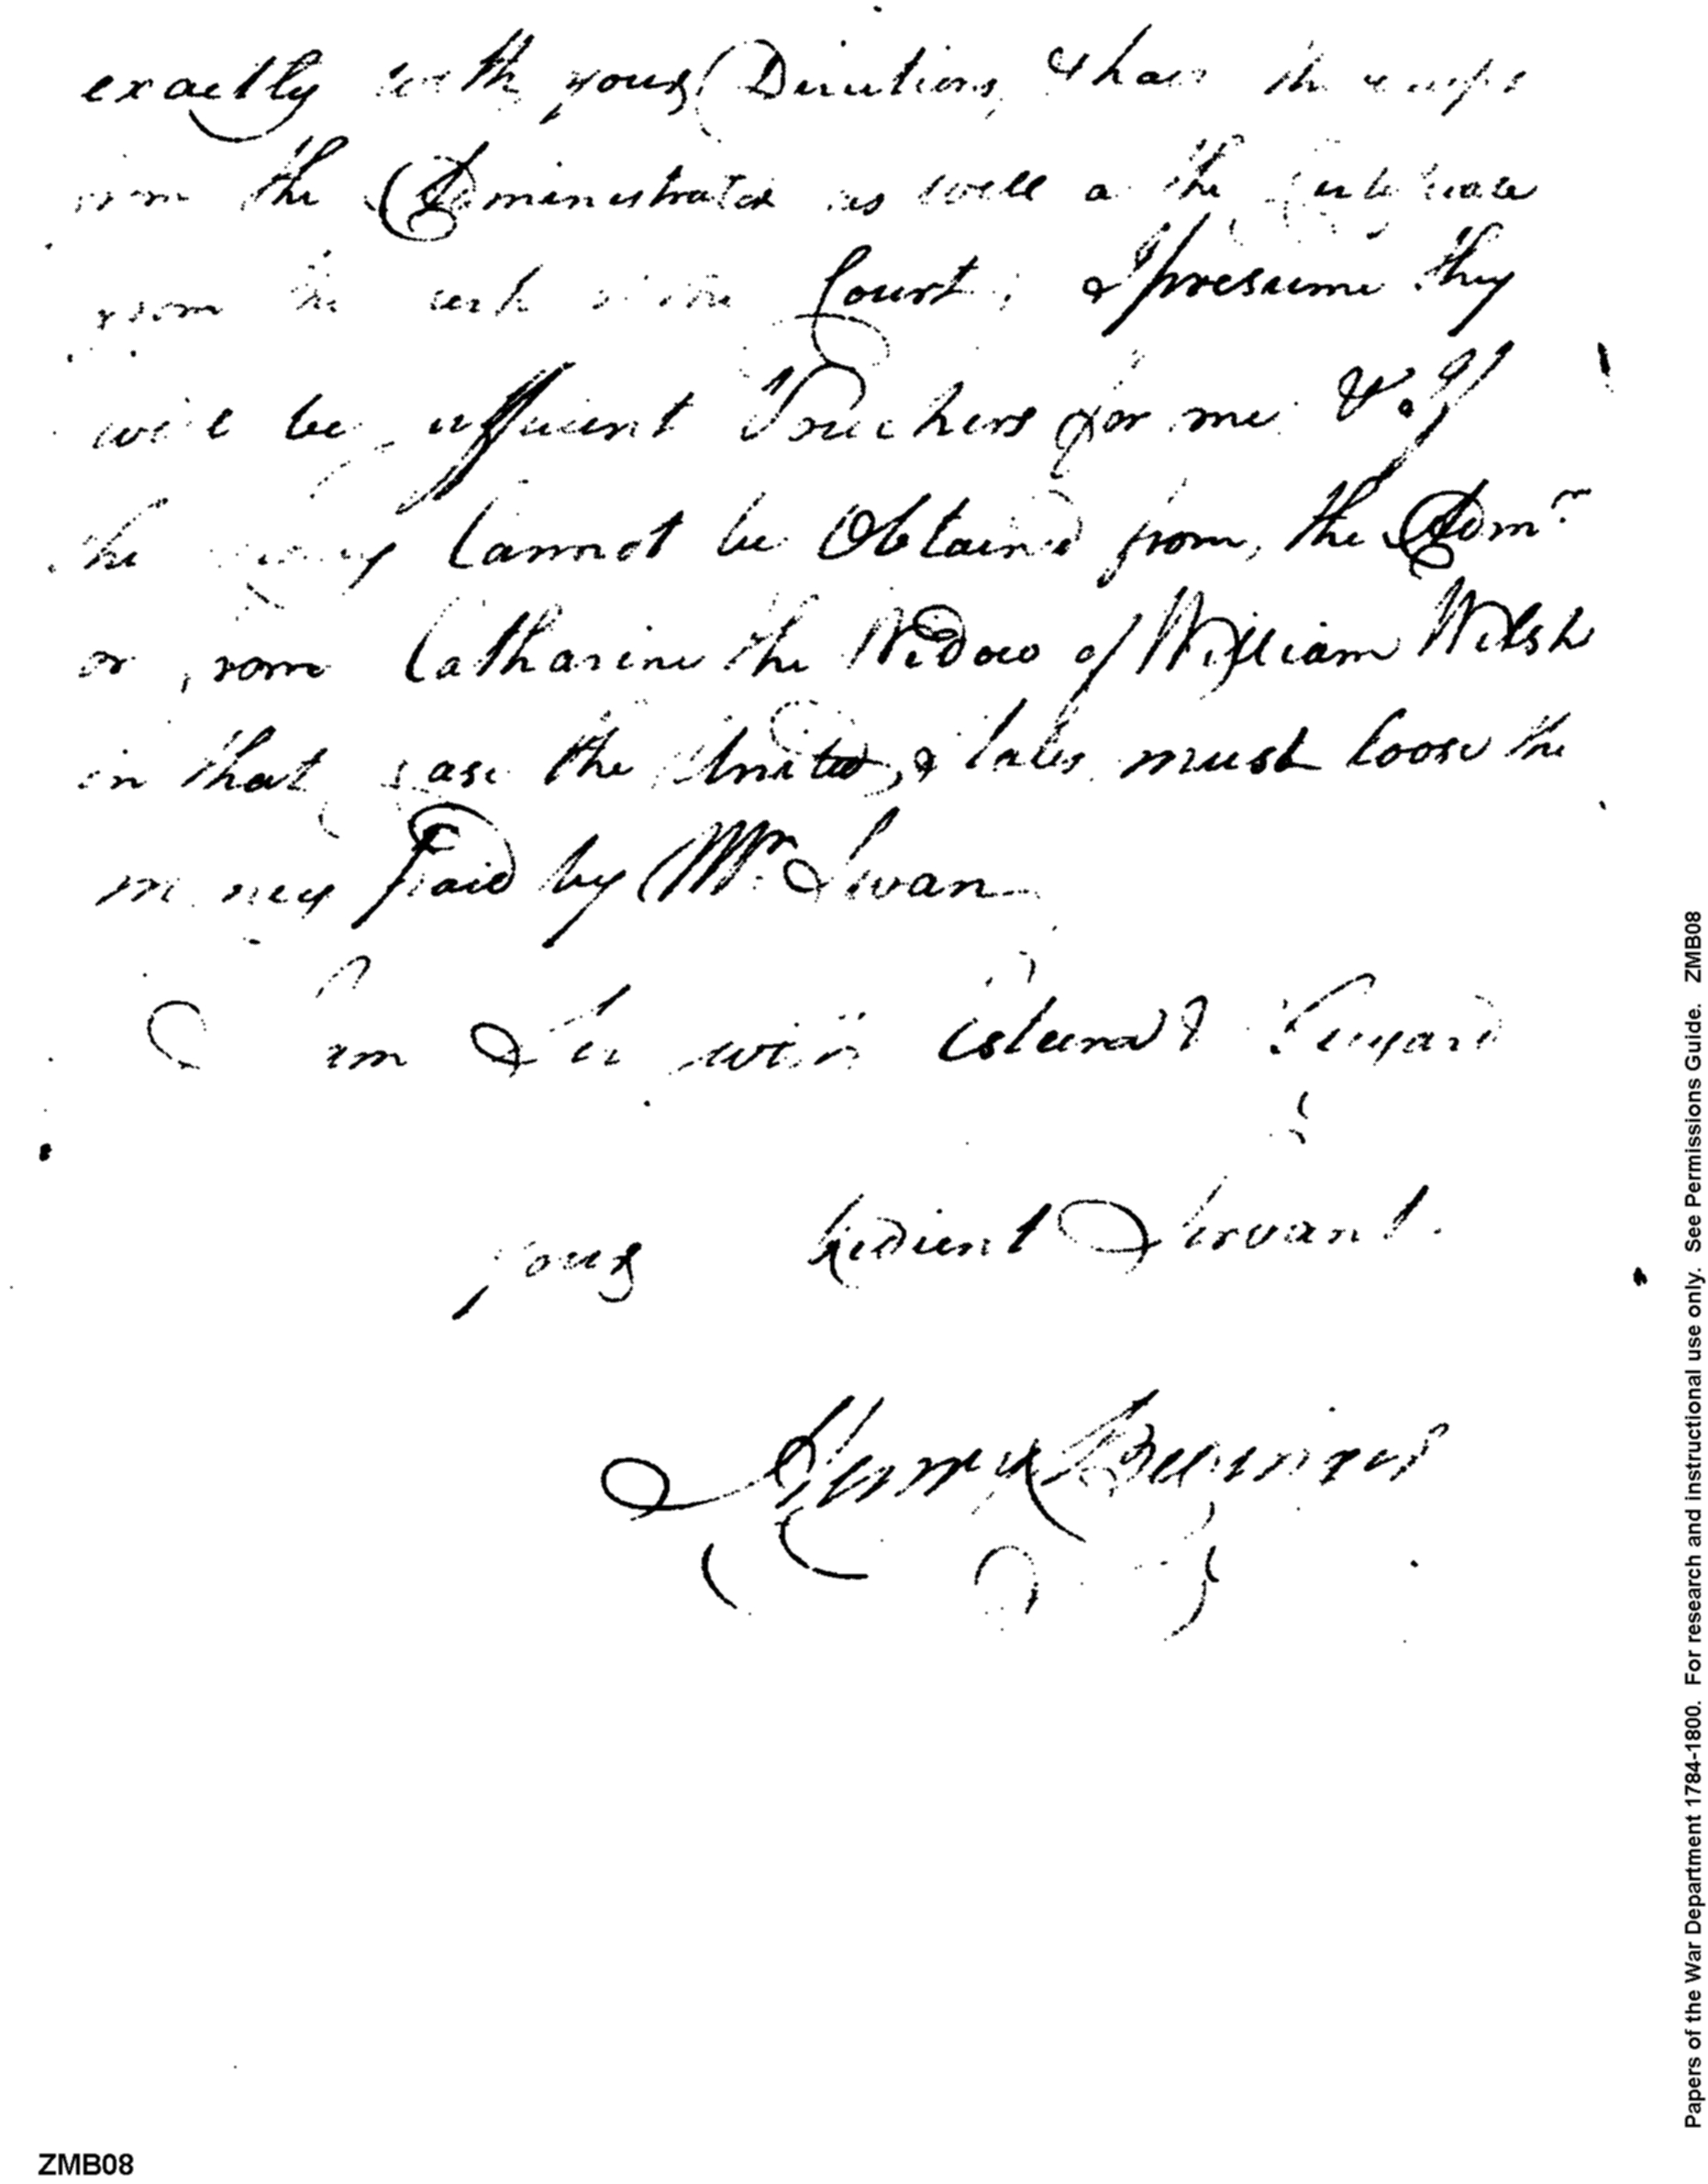 exactly with your Directions, & have the receipt
from the Administrator as well as the Certificate
from the Clerk of the Court; I presume they
will be sufficient Vouchers for me & if
the money Cannot be Obtain'd from the Admr
or from Catharine the Widow of William Welsh
in that case the United States must loose the
money paid by Mr. Swan
I am Sir with esteem & Regard
your obedient Servant.
Henry
Papers of the War Department 1784-1800. For research and instructional use only. See Permissions Guide. ZMB08
ZMB08